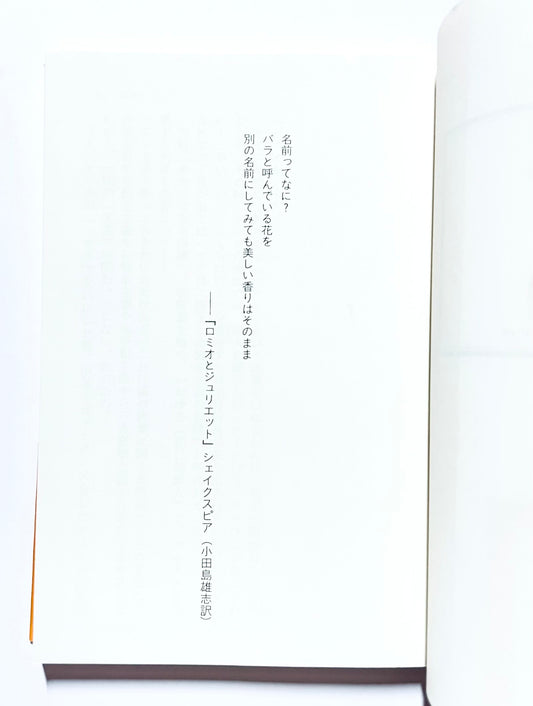 名前ってなに?
バラと呼んでいる花を
別の名前にしてみても美しい香りはそのまま
——『ロミオとジュリエット』シェイクスピア（小田島雄志訳）